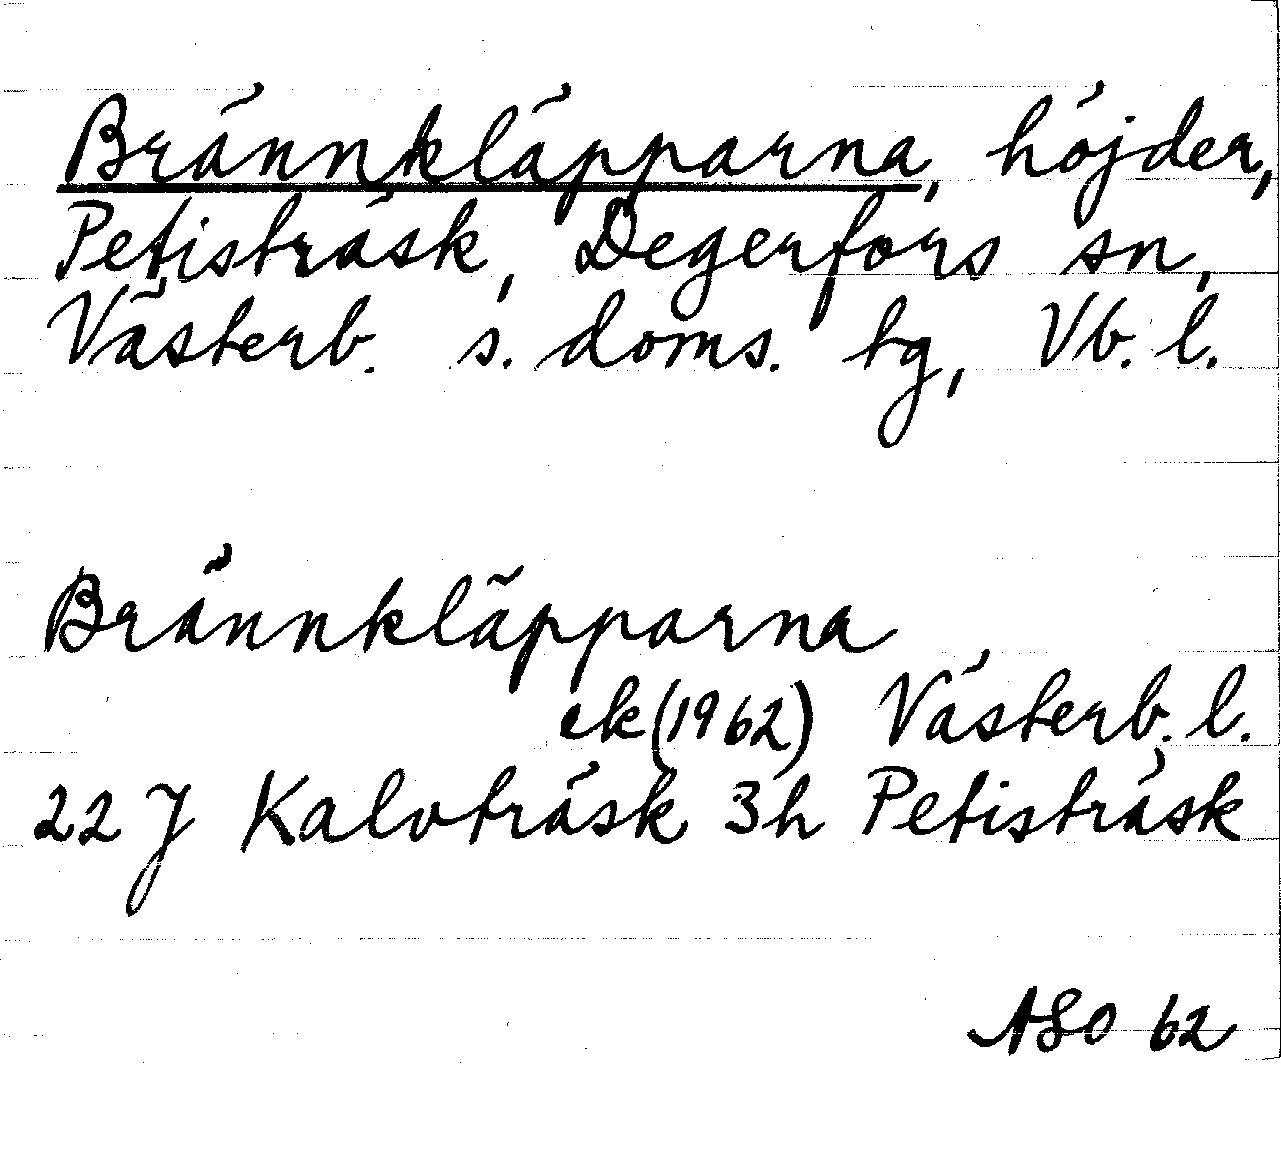 Brännkläpparna, höjder,
Petisträsk, Degerfors sn,
Västerb. s. doms. tg, Vb. l.
Brännkläpparna
ek (1962) Västerb. l.
22 J Kalvträsk 3h Petisträsk
ASO 62